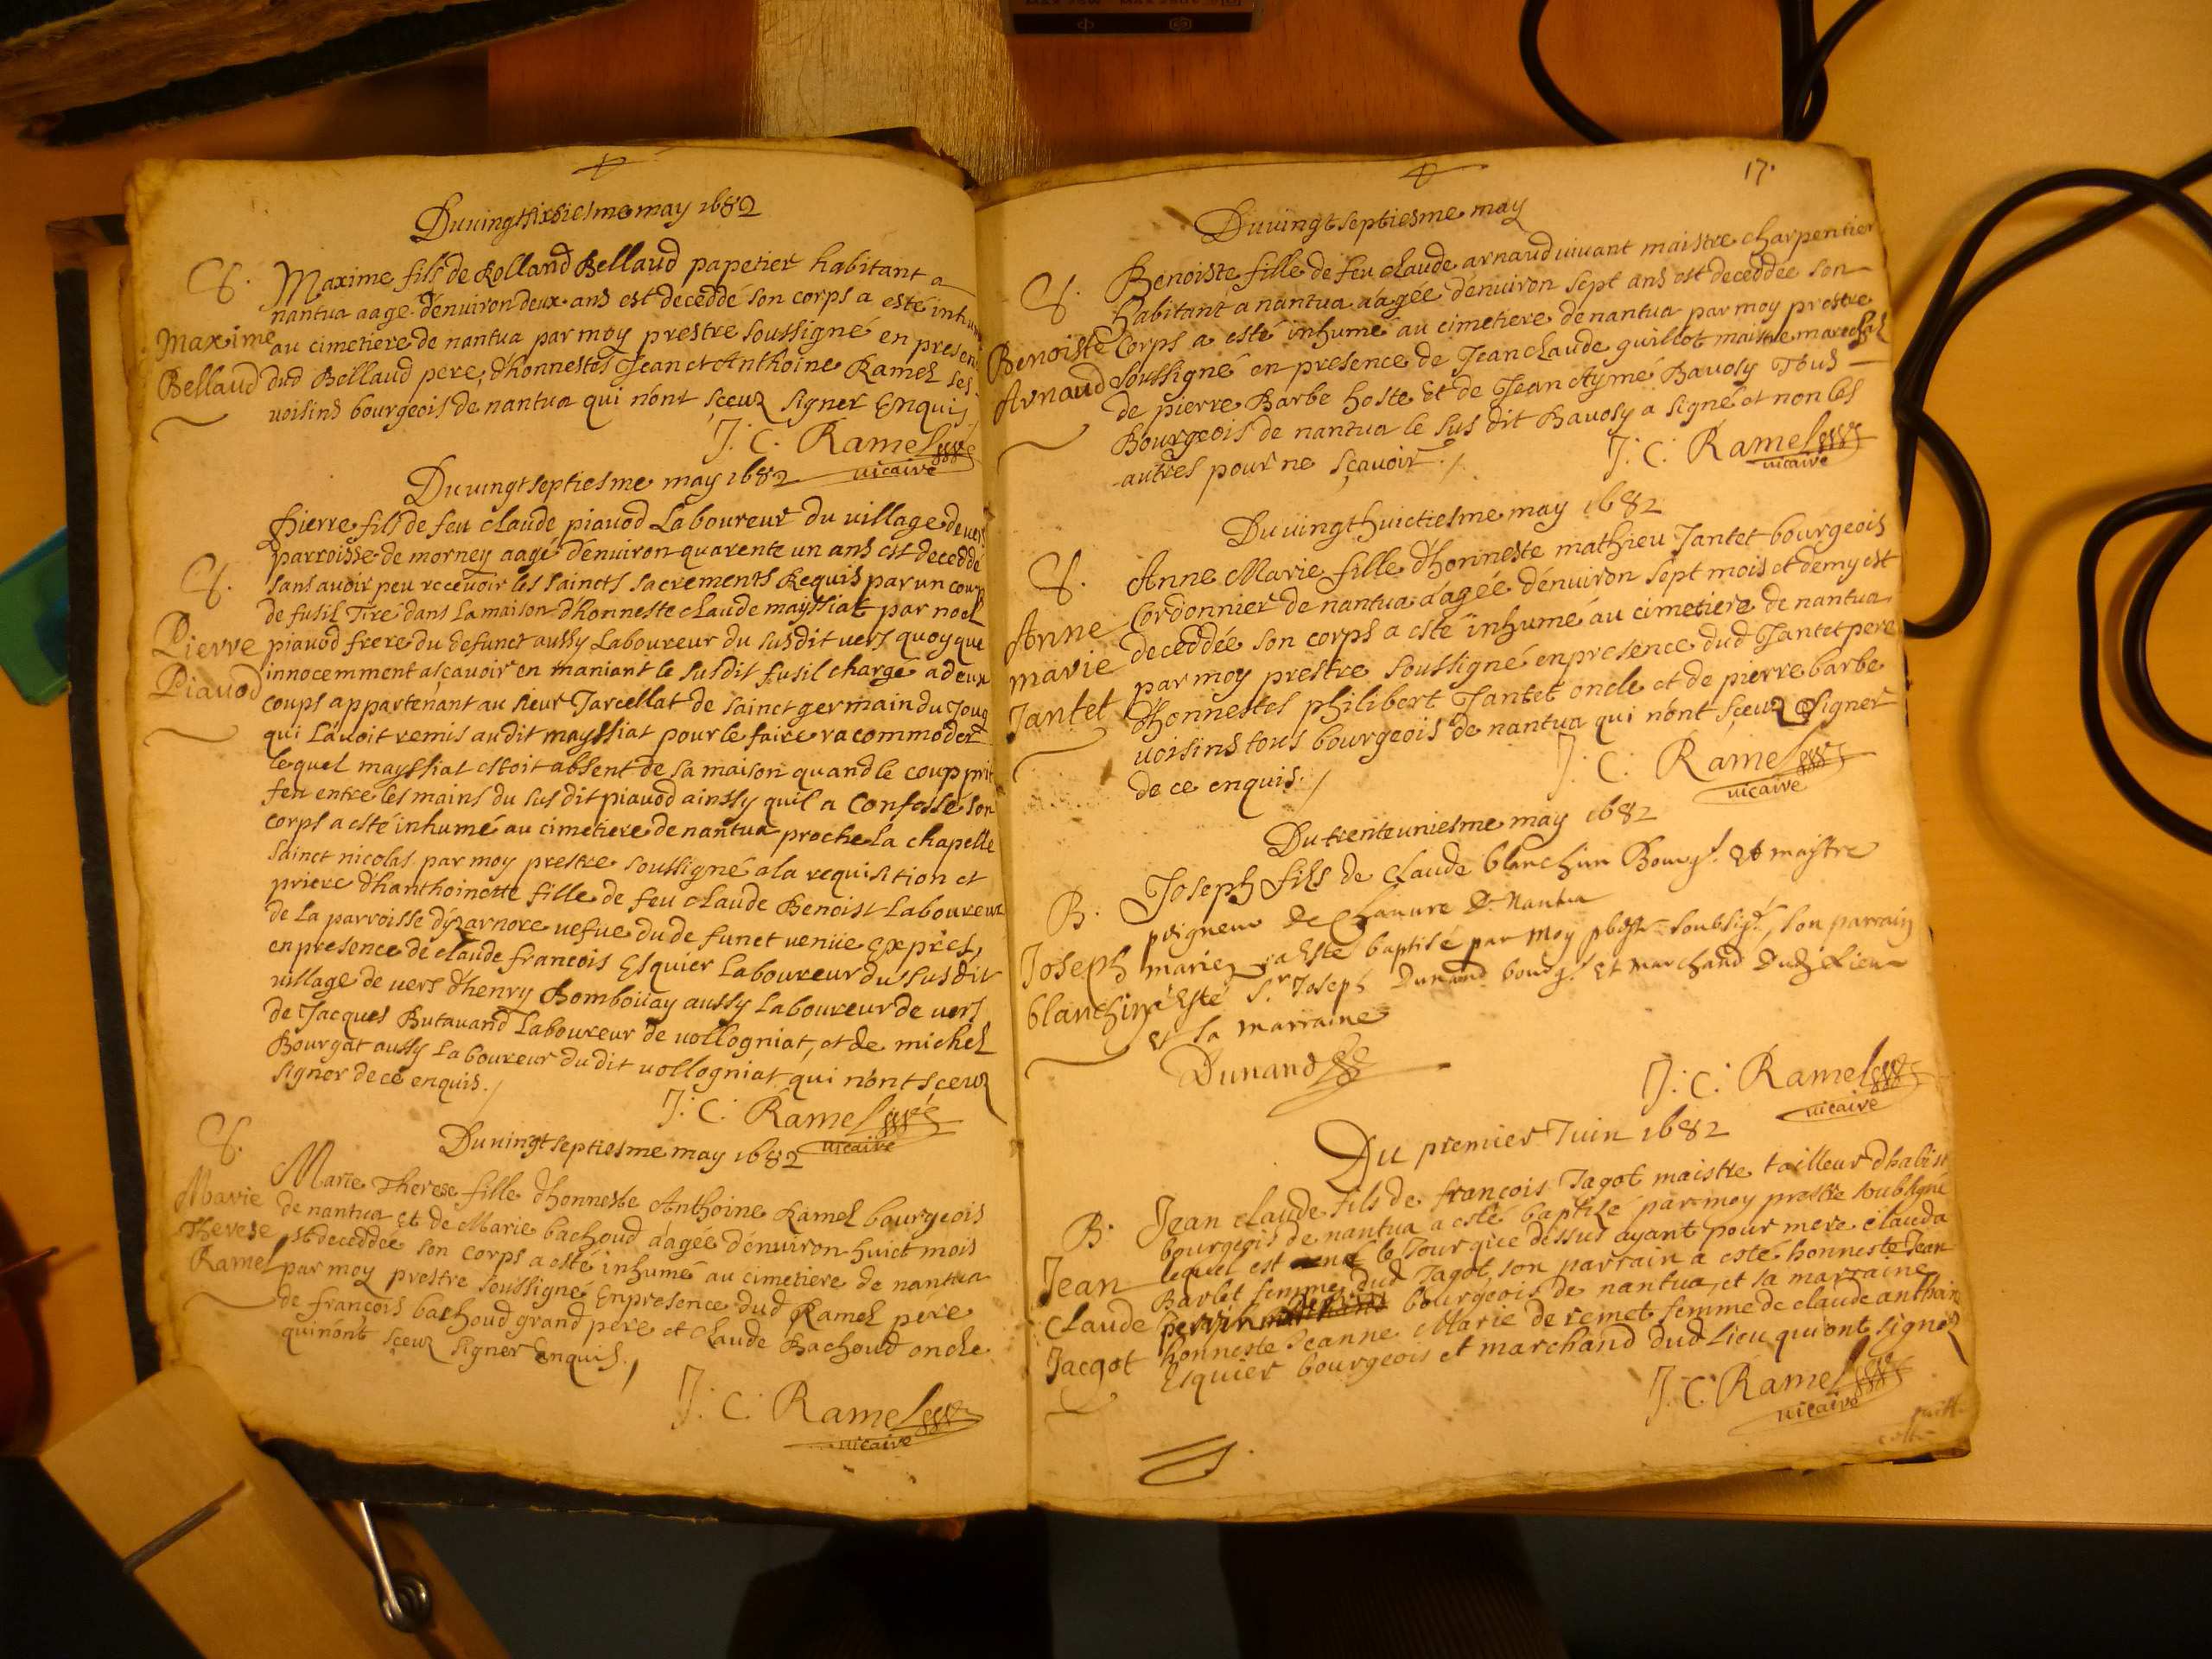 Du vingt sixiesme may 1682
S.
Maxime fils de Rolland Bellaud papetier habitant a
nantua aage d'environ deux ans est deceddé son corps a esté inhumé
Maxime
au cimetiere de nantua par moy prestre soussigné en presen
Bellaud
dud Bellaud pere, d'honnestes Jean et Anthoine Ramel ses
voisins bourgeois de nantua qui n'ont sceuz signer Enquis
J. C. Ramel
vicaire
Du vingt septiesme may 1682
Pierre fils de feu claude piavod Laboureur du village de vers
parroisse de morney aagé d'environ quarente un ans est deceddé
S.
sans avoir peu recevoir les saincts sacrements Requis par un coup
de fusil Tiré dans la maison d'honneste claude mayssiat par noel
Pierre
piavod frere du defunct aussy Laboureur du susdit vers quoyque
Piavod
innocemment ascavoir en maniant le susdit fusil chargé a deux
coups appartenant au sieur Jarcellat de sainct germain du Joug
qui L'avoit remis audit mayssiat pour le faire racommoder
lequel mayssiat estoit absent de sa maison quand le coup prit
feu entre les mains du susdit piavod ainssy quil a Confessé son
corps a esté inhumé au cimetiere de nantua proche la chapelle
sainct nicolas par moy prestre soussigné a la requisition et
priere d'hanthoinette fille de feu claude Benoist Laboureur
de la parroisse d'yzarnore vefve du defunct venüe Exprès,
en presence de claude francois Esquier Laboureur du susdit
village de vers d'henry Bomboüay aussy Laboureur de vers
de Jacques Butavand Laboureur de vollogniat, et de michel
Bourgat aussy Laboureur dudit vollogniat qui n'ont sceuz
signer de ce enquis.
J. C. Ramel
vicaire
Du vingt septiesme may 1682
S.
Marie Therese fille d'honneste Anthoine Ramel bourgeois
Marie
de nantua et de Marie bachoud aagée d'environ huict mois
Therese
est deceddée son corps a esté inhumé au cimetiere de nantua
Ramel
par moy prestre soussigné En presence dud Ramel pere
de françois bachoud grand pere et claude Bachoud oncle
qui n'ont sceuz signer Enquis.
J. C. Ramel
vicaire
17.
Du vingt septiesme may
S.
Benoiste fille de feu claude arnaud vivant maistre charpentier
habitant a nantua aagée d'environ sept ans est deceddée son
Benoiste
corps a esté inhumé au cimetiere de nantua par moy prestre
Arnaud
soussigné en presence de Jean claude guillot maistre marechal
de pierre Barbe hoste Et de Jean Aymé Bavosy Tous
Bourgeois de nantua le susdit Bavosy a signé et non les
autres pour ne sçavoir.
J. C. Ramel
vicaire
Du vingt huictiesme may 1682
S.
Anne Marie fille d'honneste mathieu Jantet bourgeois
Cordonnier de nantua aagée d'environ sept mois et demy est
Anne
deceddée son corps a esté inhumé au cimetiere de nantua
marie
par moy prestre soussigné en presence dud Jantet pere
Jantet
d'honnestes philibert Jantet oncle et de pierre barbe
voisins tous bourgeois de nantua qui n'ont sceuz signer
de ce enquis.
J. C. Ramel
vicaire
Du trente uniesme may 1682
B.
Joseph fils de claude blanchin Bourg. Et maistre
peigneur de Chanvre de Nantua
Joseph
mariez, a Esté baptisé par moy soubsig., son parrain
blanchin
a Esté Sr Joseph Dunand bourg. Et marchand Dud. Lieu
et sa marraine
Dunand
J. C. Ramel
vicaire
Du premier Juin 1682
B.
Jean claude fils de françois Jagot maistre tailleur d'habist
bourgeois de nantua a esté baptizé par moy prestre soubsigné
Jean
lequel est né le jour que dessus ayant pour mere clauda
Claude
Barbet femme dud Jagot, son parrain a esté honneste Jean
Jacqot
bourgeois de nantua, et sa marraine
honneste Jeanne Marie de remet femme de claude anthoin
Esquier bourgeois et marchand dud Lieu qui ont signez
J. C. Ramel
vicaire